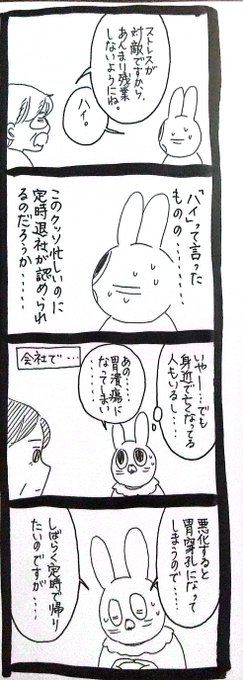 ストレスが
対敵ですから、
あんまり残業
しないようにね。
ハイ。
「ハイ」って言った
ものの・・・・・・
このクッソ忙しいのに
定時退社が認められ
るのだろうか・・・・・・
いやー・・・でも
身近で亡くなってる
人もいるし・・・・
会社で・・・
あの・・・・
胃潰瘍に
なってしまい
悪化すると
胃穿孔になって
しまうので・・・・
しばらく定時で帰り
たいのですが・・・・